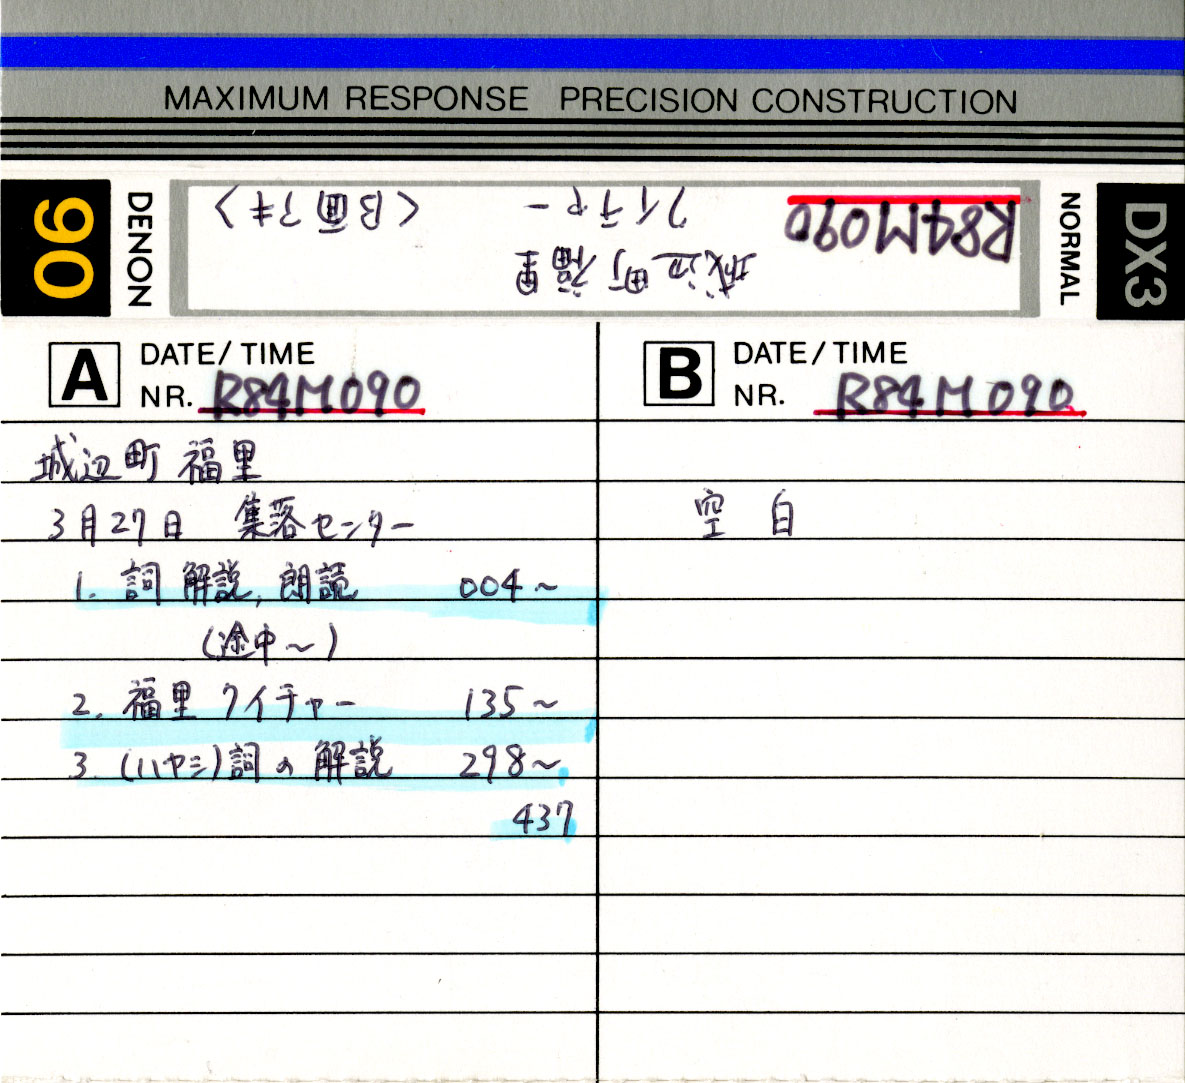 MAXIMUM RESPONSE PRECISION CONSTRUCTION
90
DENON
R84M090
城辺町福里
クイチャー <B面アキ>
NORMAL
DX3
A DATE/TIME
NR. R84M090
城辺町 福里
3月27日 集落センター
1. 詞 解説, 朗読 004~
(途中~)
2. 福里 クイチャー 135~
3. (ハヤシ)詞の解説 298~
437
B DATE/TIME
NR. R84M090
空白